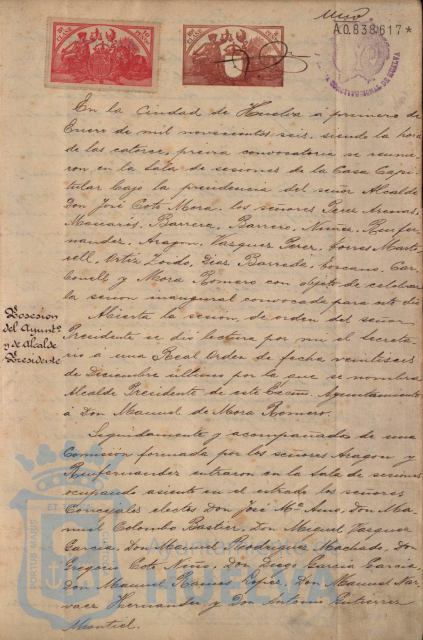 Uno
A0.838.617*
CONSTITUCIONAL DE HUELVA
En la Ciudad de Huelva á primero de
Enero de mil novecientos seis, siendo la hora
de las catorce, previa convocatoria se reunie-
ron en la Sala de sesiones de la Casa Capi-
tular bajo la presidencia del señor Alcalde
Don José Coto Mora, los señores Perez
Macías, Barrera, Barrero, Nuñez, Rui-
fernandez, Aragon, Vazquez Perez, Torres Mart-
Ortiz Zoido, Diaz Barreda, Toscano, Gar-
y Mora Romero con objeto de celebrar
la sesion inaugural convocada para este dia
Posesion
del Ayuntº
y de Alcalde
Presidente
Abierta la sesion, de orden del señor
Presidente se dio lectura por mi el Secreta-
rio á una Real Orden de fecha veintiseis
de Diciembre último por la que se nombra
Alcalde Presidente de este Excmo. Ayuntamiento
á Don Manuel de Mora Romero.
Seguidamente y acompañados de una
Comision formada por los señores Aragon y
Ruifernandez entraron en la Sala de sesiones
ocupando asiento en el estrado los señores
Concejales electos Don José Mª Amo, Don Ma-
nuel Colombo Bastier, Don Miguel Vazquez
Garcia, Don Manuel Rodriguez Machado, Don
Gregorio Coto Don Diego Garcia Garcia,
Don Manuel Ramos Lopez, Don Manuel Nar-
vaez Hernandez y Don Antonio Gutierrez
Montiel.
PORTUS MARIS ET
Ayuntamiento de
HUELVA